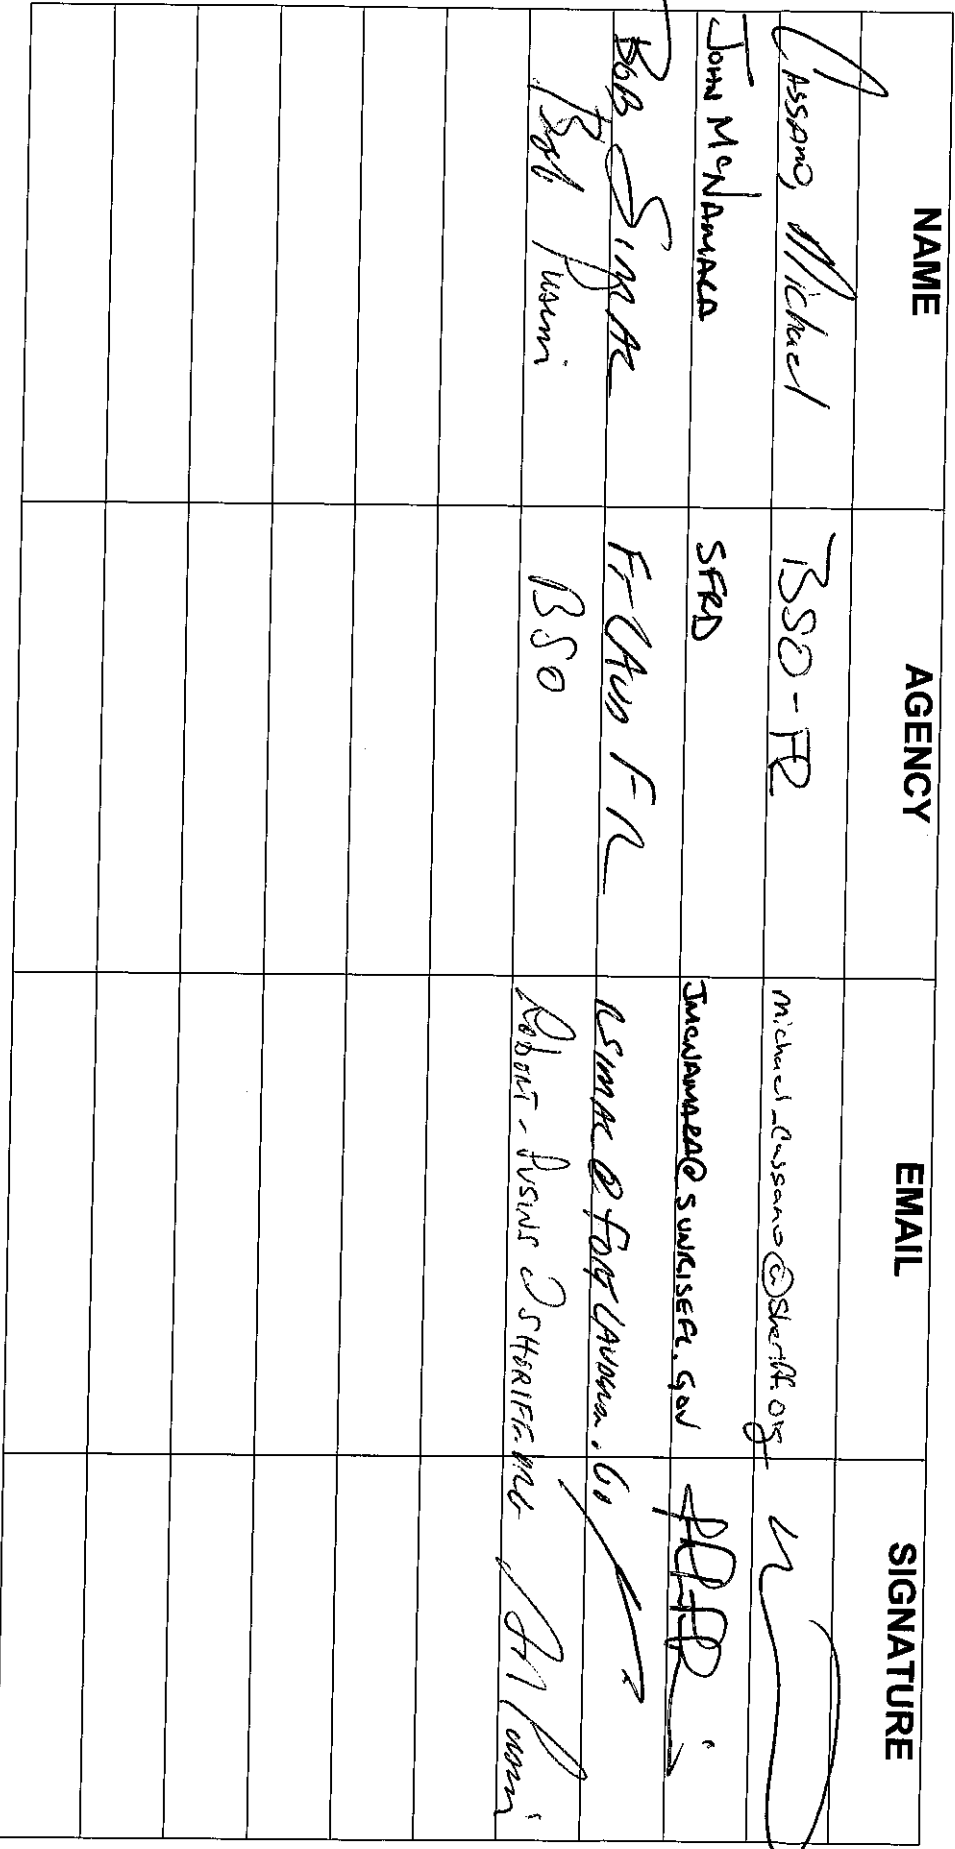 NAME AGENCY EMAIL SIGNATURE
Cassano, Michael BSO-FR michael_cassano@sheriff.org
JOHN McNAMARA SFRD JMCNAMARA@SUNRISEFL.GOV
BOB SIMAC FT LAUD FR RSIMAC@FORTLAUDERDALE.GO
Bob Pusins BSO ROBERT_PUSINS@SHERIFF.ORG